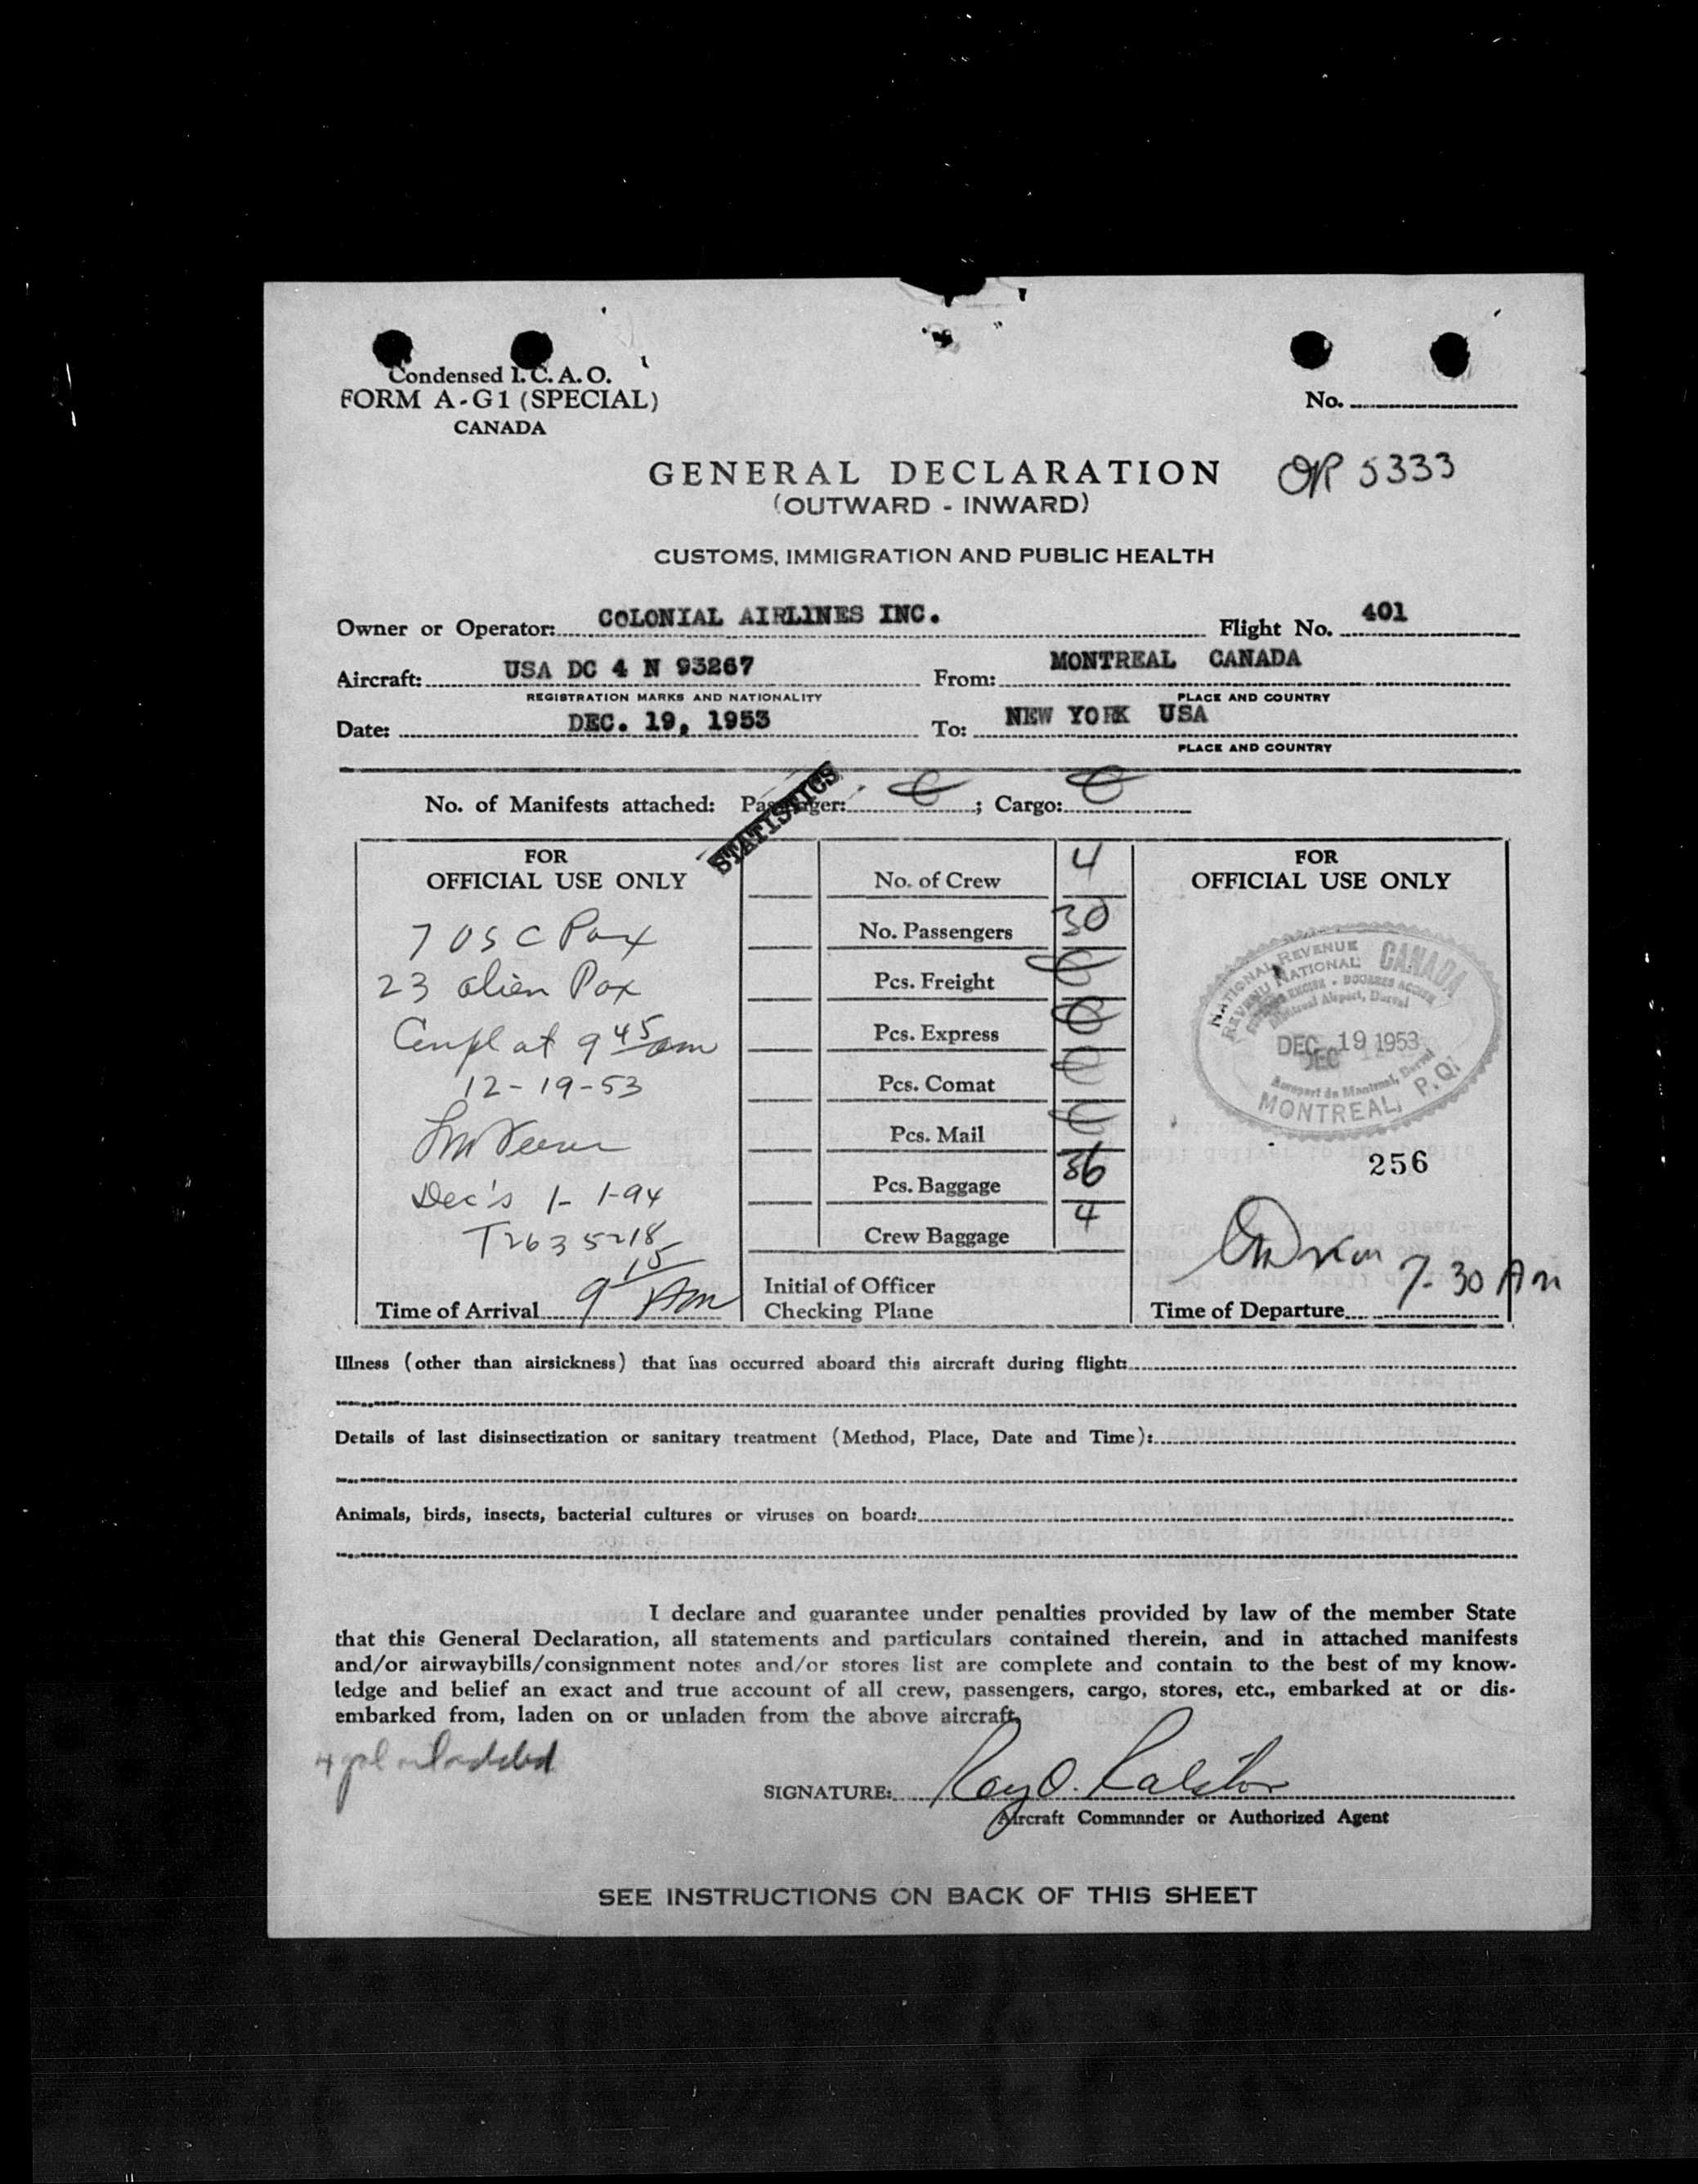 Condensed I. C. A. O.
FORM A-G1 (SPECIAL)
CANADA
No.
GENERAL DECLARATION
OR 5333
(OUTWARD - INWARD)
CUSTOMS, IMMIGRATION AND PUBLIC HEALTH
Owner or Operator: COLONIAL AIRLINES INC. Flight No. 401
Aircraft: USA DC 4 N 93267 From: MONTREAL CANADA
REGISTRATION MARKS AND NATIONALITY PLACE AND COUNTRY
Date: DEC. 19, 1953 To: NEW YORK USA
PLACE AND COUNTRY
No. of Manifests attached: Passenger: ; Cargo:
STATISTICS
FOR
OFFICIAL USE ONLY
7 USC Pax
23 alien Pax
at 9 45 am
12-19-53
Dec's 1- 1-94
T2635218
Time of Arrival 9 15 Am
No. of Crew 4
No. Passengers 30
Pcs. Freight
Pcs. Express
Pcs. Comat
Pcs. Mail
Pcs. Baggage 36
Crew Baggage 4
Initial of Officer
Checking Plane
FOR
OFFICIAL USE ONLY
NATIONAL REVENUE CANADA
REVENU NATIONAL
DEC 19 1953
DEC
MONTREAL, P.Q.
256
Time of Departure 7-30 Am
Illness (other than airsickness) that has occurred aboard this aircraft during flight:
Details of last disinsectization or sanitary treatment (Method, Place, Date and Time):
Animals, birds, insects, bacterial cultures or viruses on board:
I declare and guarantee under penalties provided by law of the member State
that this General Declaration, all statements and particulars contained therein, and in attached manifests
and/or airwaybills/consignment notes and/or stores list are complete and contain to the best of my know-
ledge and belief an exact and true account of all crew, passengers, cargo, stores, etc., embarked at or dis-
embarked from, laden on or unladen from the above aircraft.
SIGNATURE: Ray O. Ralston
Aircraft Commander or Authorized Agent
SEE INSTRUCTIONS ON BACK OF THIS SHEET